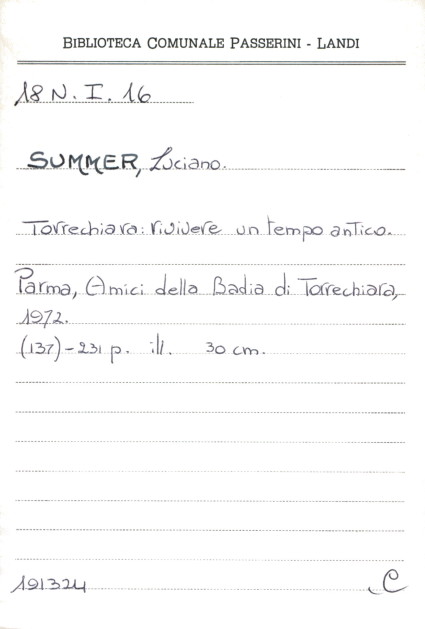 BIBLIOTECA COMUNALE PASSERINI - LANDI
18 N. I. 16
SUMMER, Luciano.
Torrechiara: rivivere un tempo antico.
Parma, Amici della Badia di Torrechiara,
1972.
(137)-231 p. ill. 30 cm.
191324 C